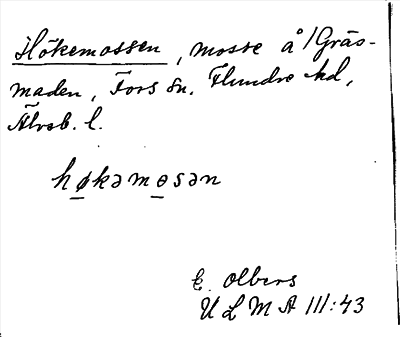 Hökemossen, mosse å/Gräs-
maden, Fors sn. Flundre hd,
Älvsb. l.
høkəmɵsən
E. Olbers
ULMA III:43